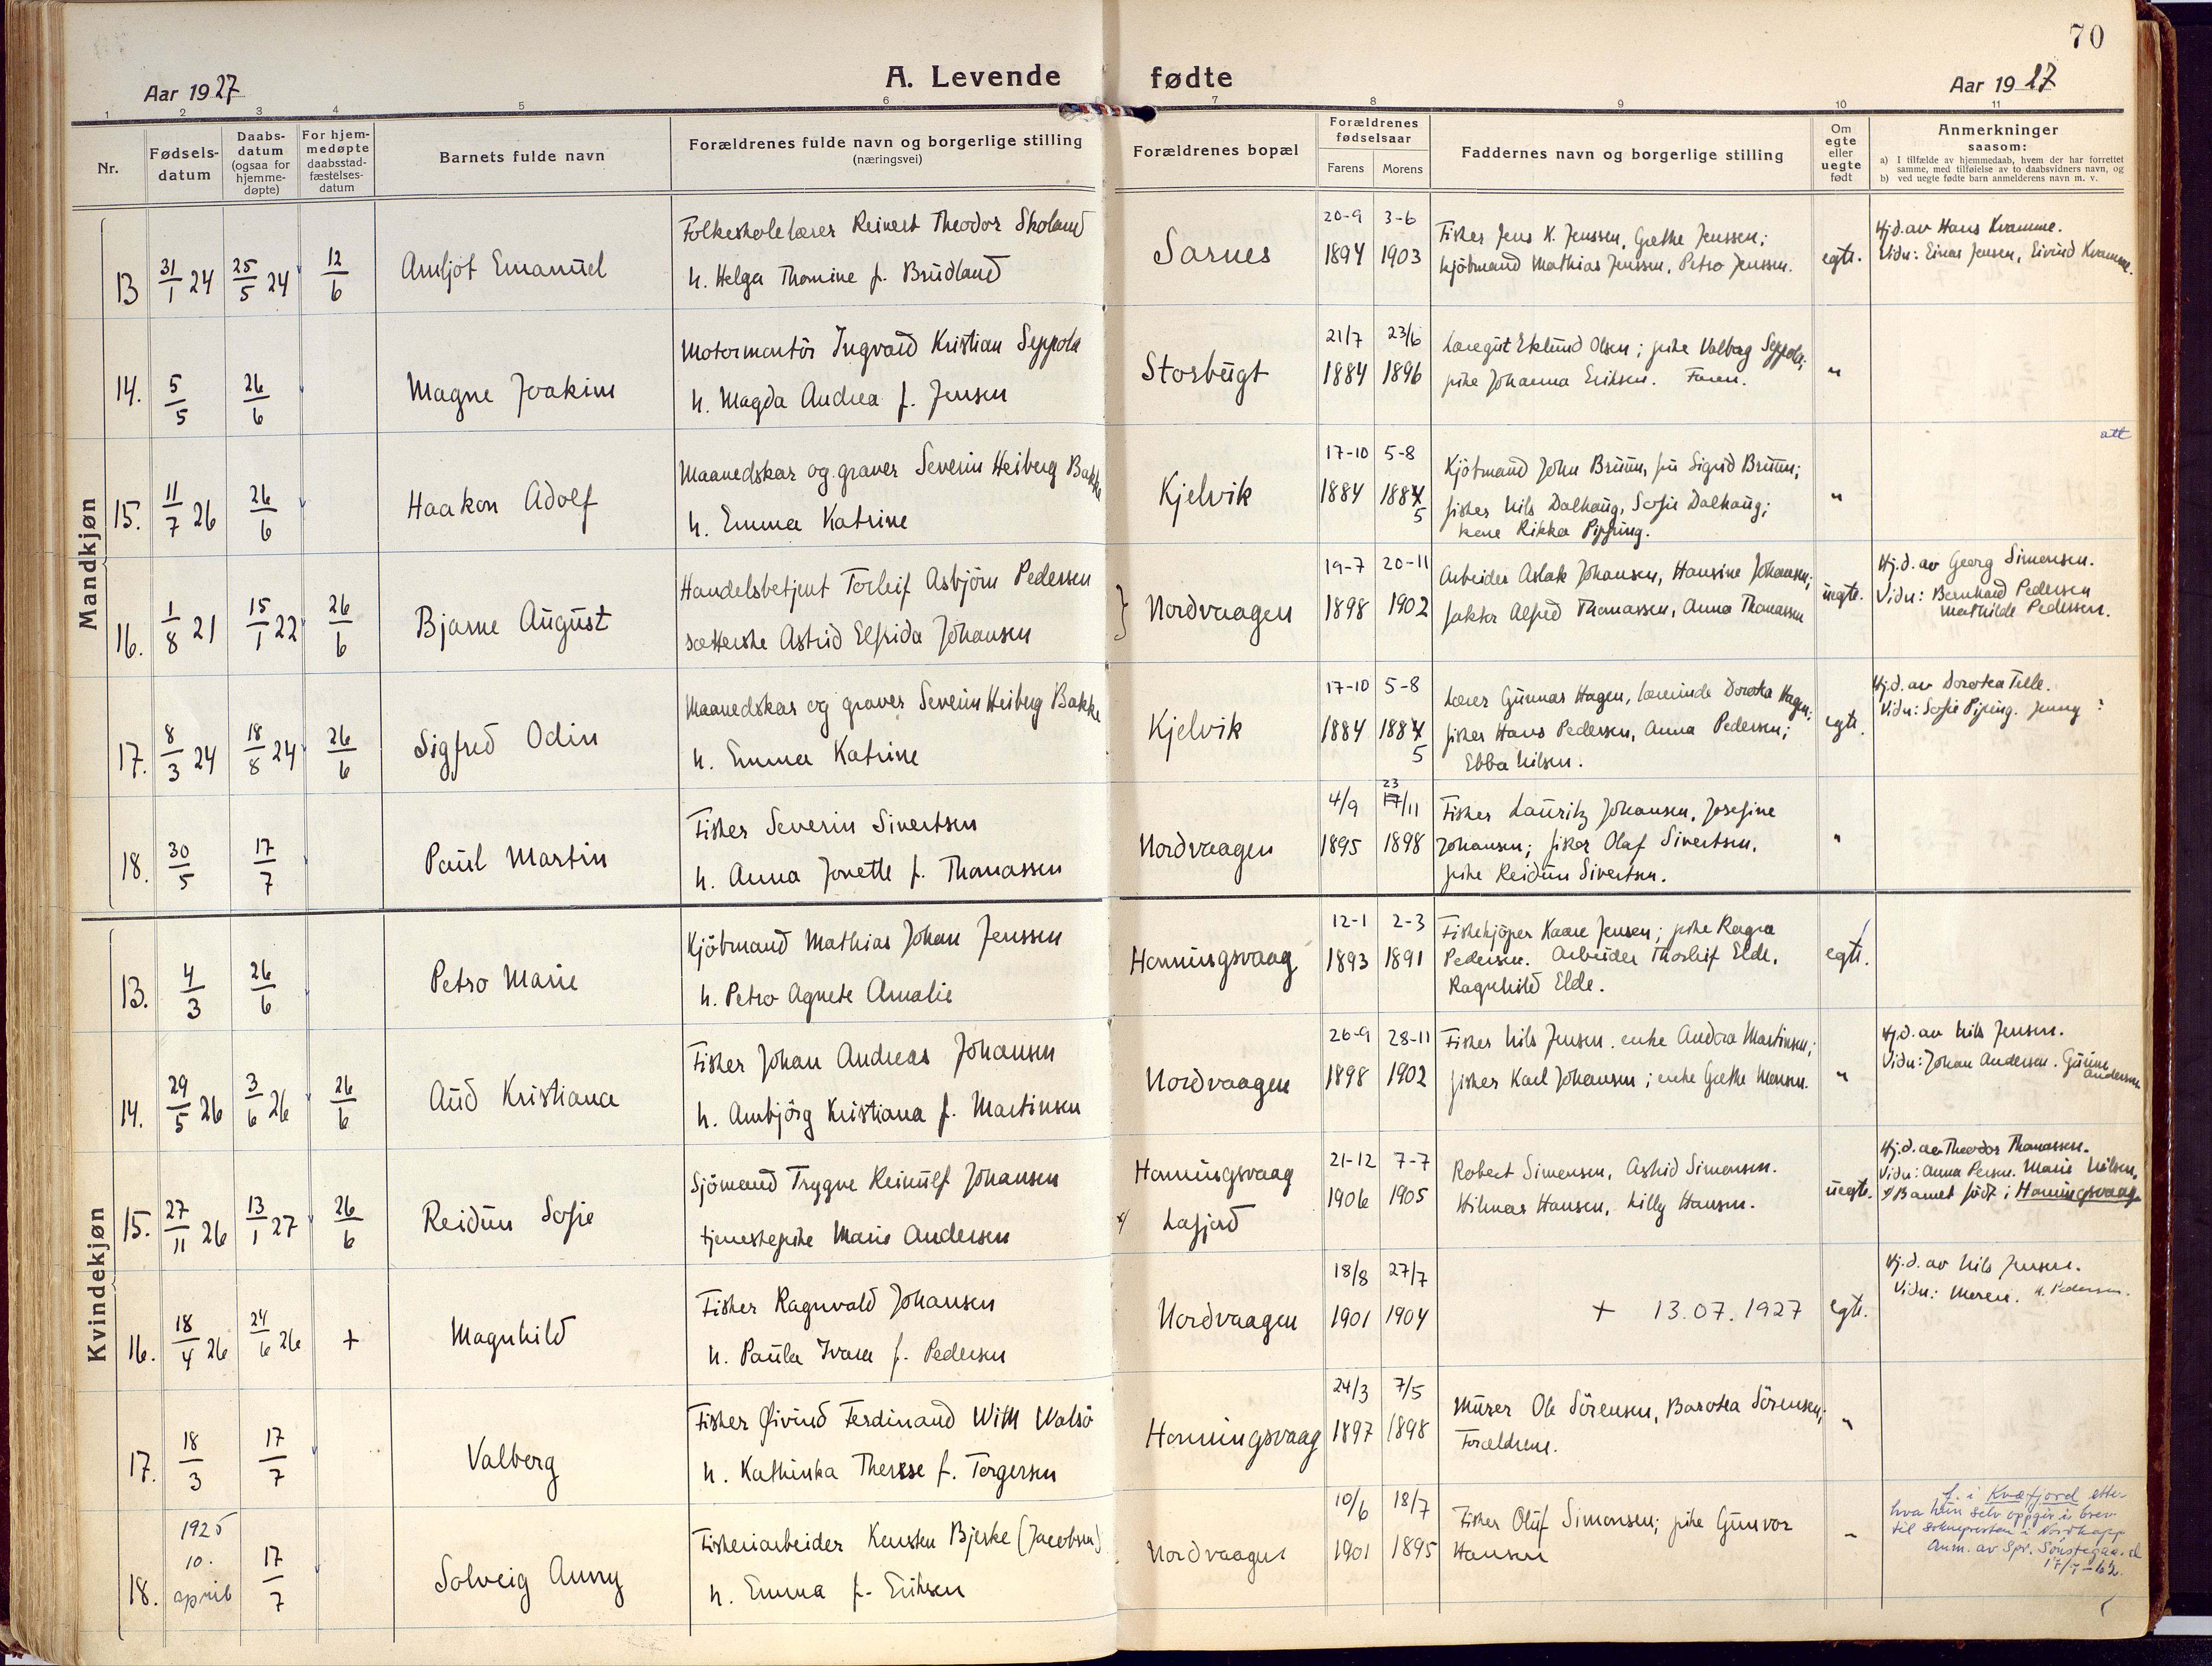 70
Aar 1927
A. Levende fødte
Aar 1927
1 2 3 4 5 6 7 8 9 10 11
Nr.
Fødsels-
datum
Daabs-
datum
(ogsaa for
hjemme-
døpte)
For hjem-
medøpte
daabsstad-
fæstelses-
datum
Barnets fulde navn
Forældrenes fulde navn og borgerlige stilling
(næringsvei)
Forældrenes bopæl
Forældrenes
fødselsaar
Farens Morens
Faddernes navn og borgerlige stilling
Om
egte
eller
uegte
født
Anmerkninger
saasom:
a) I tilfælde av hjemmedaab, hvem der har forrettet
samme, med tilføielse av to daabsvidners navn, og
b) ved uegte fødte barn anmelderens navn m. v.
Mandkjøn
13 31/1 24 25/5 24 12/6 Arnljot Emanuel
Folkeskolelærer Reinert Theodor Skoland
h. Helga Thomine f. Brudland
Sarnes
20-9 3-6
1894 1903
Fisker Jens K. Jenssen, Grethe Jenssen;
kjöbmand Mathias Jenssen, Petro Jenssen.
egte.
Hj.d. av Hans Kvamme.
Vidn: Einar Jensen, Eivind Kvamme.
14. 5/5 26/6 Magne Joakim
Motormontör Ingvald Kristian Seppola
h. Magda Andrea f. Jensen
Storbugt
21/7 23/6
1884 1896
Læregut Eklund Olsen; pike Valborg Seppola;
pike Johanna Eriksen. Faren.
"
15. 11/7 26 26/6 Haakon Adolf
Maanedskar og graver Severin Heiberg Bakke
h. Emma Katrine
Kjelvik
17-10 5-8
1884 1884
5
Kjöbmand John Bruun, fru Sigrid Bruun;
fisker Nils Dalhaug, Sofie Dalhaug;
kone Rikka Pipping.
"
att
16. 1/8 21 15/1 22 26/6 Bjarne August
Handelsbetjent Torleif Asbjörn Pedersen
sætterske Astrid Elfrida Johansen
} Nordvaagen
19-7 20-11
1898 1902
Arbeider Aslak Johansen, Hansine Johansen;
faktor Alfred Thomassen, Anna Thomassen
uegte.
Hj.d. av Georg Simonsen.
Vidn: Bernhard Pedersen
Mathilde Pedersen.
17. 8/3 24 18/8 24 26/6 Sigfred Odin
Maanedskar og graver Severin Heiberg Bakke
h. Emma Katrine
Kjelvik
17-10 5-8
1884 1884
5
Lærer Gunnar Hagen, lærerinde Dorotea Hagen;
fisker Hans Pedersen, Anna Pedersen;
Ebba Nilsen.
egte.
Hj.d. av Dorotea Tille.
Vidn: Sofie Piping. Jenny ?
18. 30/5 17/7 Paul Martin
Fisker Severin Sivertsen
h. Anna Jonette f. Thomassen
Nordvaagen
4/9 23 17/11
1895 1898
Fisker Lauritz Johansen, Josefine
Johansen; fisker Olaf Sivertsen,
pike Reidun Sivertsen.
"
Kvindekjøn
13. 4/3 26/6 Petro Marie
Kjöbmand Mathias Johan Jenssen
h. Petro Agnete Amalie
Honningsvaag
12-1 2-3
1893 1891
Fiskekjöper Kaare Jensen; pike Ragna
Pedersen. Arbeider Thorleif Elde,
Ragnhild Elde.
egte.
14. 29/5 26 3/6 26 26/6 Aud Kristiana
Fisker Johan Andreas Johansen
h. Arnbjörg Kristiana f. Martinsen
Nordvaagen
26-9 28-11
1898 1902
Fisker Nils Jensen. enke Andrea Martinsen;
fisker Karl Johansen; enke Grethe Monsen.
"
Hj.d. av Nils Jensen.
Vidn: Johan Andersen. Gunne
Andersen
15. 27/11 26 13/1 27 26/6 Reidun Sofie
Sjömand Trygve Reinulf Johansen
tjenestepike Marie Andersen
Honningsvaag
x/ Lafjord
21-12 7-7
1906 1905
Robert Simonsen, Astrid Simonsen.
Hilmar Hansen, Lilly Hansen.
uegte.
Hj.d. av Theodor Thomassen.
Vidn: Anna Persen. Marie Nilsen.
x/ Barnet född i Honningsvaag
16. 18/4 26 24/6 26 + Magnhild
Fisker Ragnvald Johansen
h. Paula Ivara f. Pedersen
Nordvaagen
18/8 27/7
1901 1904
+ 13.07.1927
egte.
Hj.d. av Nils Jensen.
Vidn: Moren. H. Pedersen.
17. 18/3 17/7 Valberg
Fisker Øivind Ferdinand With Walsö
h. Kathinka Therese f. Torgersen
Honningsvaag
24/3 7/5
1897 1898
Murer Ole Sörensen, Barotea Sörensen;
Forældrene.
"
18. 1925 10. april 17/7 Solveig Anny
Fiskeriarbeider Kersten Bjerke (Jacobsen)
h. Emma f. Eriksen
Nordvaagen
10/6 18/7
1901 1895
Fisker Oluf Simonsen; pike Gunvor
Hansen
"
f. i Kvæfjord etter
hva hun selv oppgir i brev
til soknepresten i Nordkapp
Anm. av Spr. Sönstegaard
17/7-62.